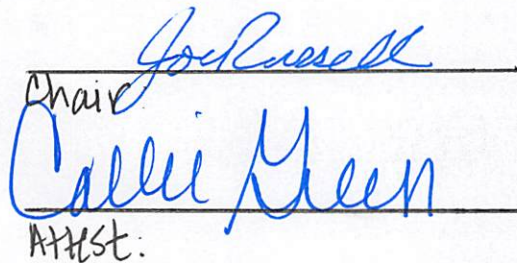 Joe Russell
Chair
Callie Green
Attest: